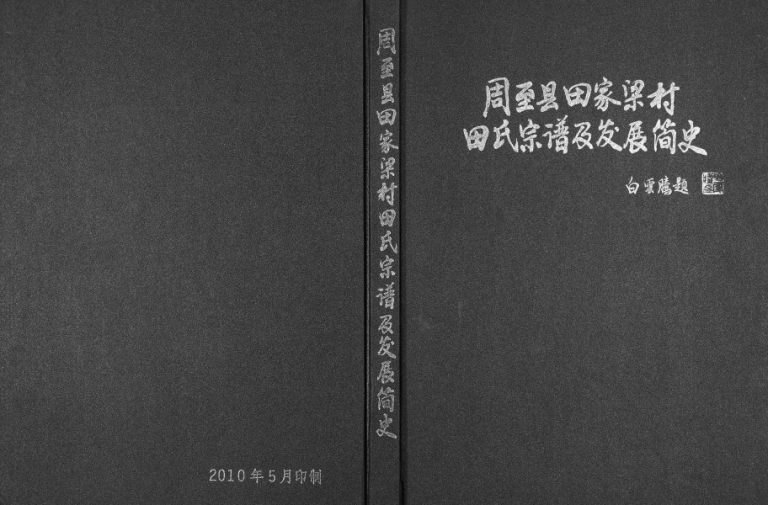 周至县田家梁村
田氏宗谱及发展简史
白云腾题
周至县田家梁村田氏宗谱及发展简史
2010年5月印制